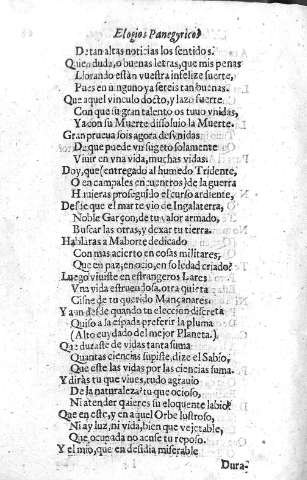 Elogios Panegyricos
De tan altas noticias los sentidos.
Quien duda, o buenas letras, que mis penas
Llorando està vuestra infelize suerte,
Pues en ninguno ya sereis tan buenas.
Que aquel vinculo docto, y lazo fuerte
Con que su gran talento os tuuo vnidas,
Ya con su Muerte dissoluio la Muerte.
Gran prueua sois agora desvnidas
De que puede vn sugeto solamente
Viuir en vna vida, muchas vidas.
Doy, que (entregado al humedo Tridente,
O en campales encuentros) de la guerra
Huuieras proseguido el curso ardiente,
Desde que el mar te vio de Ingalaterra,
Noble Garçon, de tu valor armado,
Buscar las otras, y dexar tu tierra.
Hablaras a Maborte dedicado
Con mas acierto en cosas militares,
Que en paz, en ocio, en soledad criado?
Luego viuiste en estrangeros Lares
Vna vida estruendosa, otra quieta
Cisne de tu querido Mançanares.
Y aun desde quando tu eleccion discreta
Quiso a la espada preferir la pluma
(Alto cuydado del mejor Planeta.)
Que duraste de vidas tanta suma
Quantas ciencias supiste, dize el Sabio,
Que este las vidas por las ciencias suma.
Y diràs tu que viues, rudo agrauio
De la naturaleza? tu que ocioso,
Ni atender quieres su eloquente labio?
Que en este, y en aquel Orbe lustroso,
Ni ay luz, ni vida, bien que vejetable,
Que ocupada no acuse tu reposo.
Y el mio, que en desidia miserable
Dura-